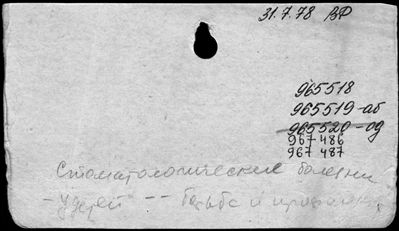 31.7.78 ВР
965518
965519-аб
965520-од
967 486
967 487
Стоматологические болезни
- у детей -- борьба и профилактика